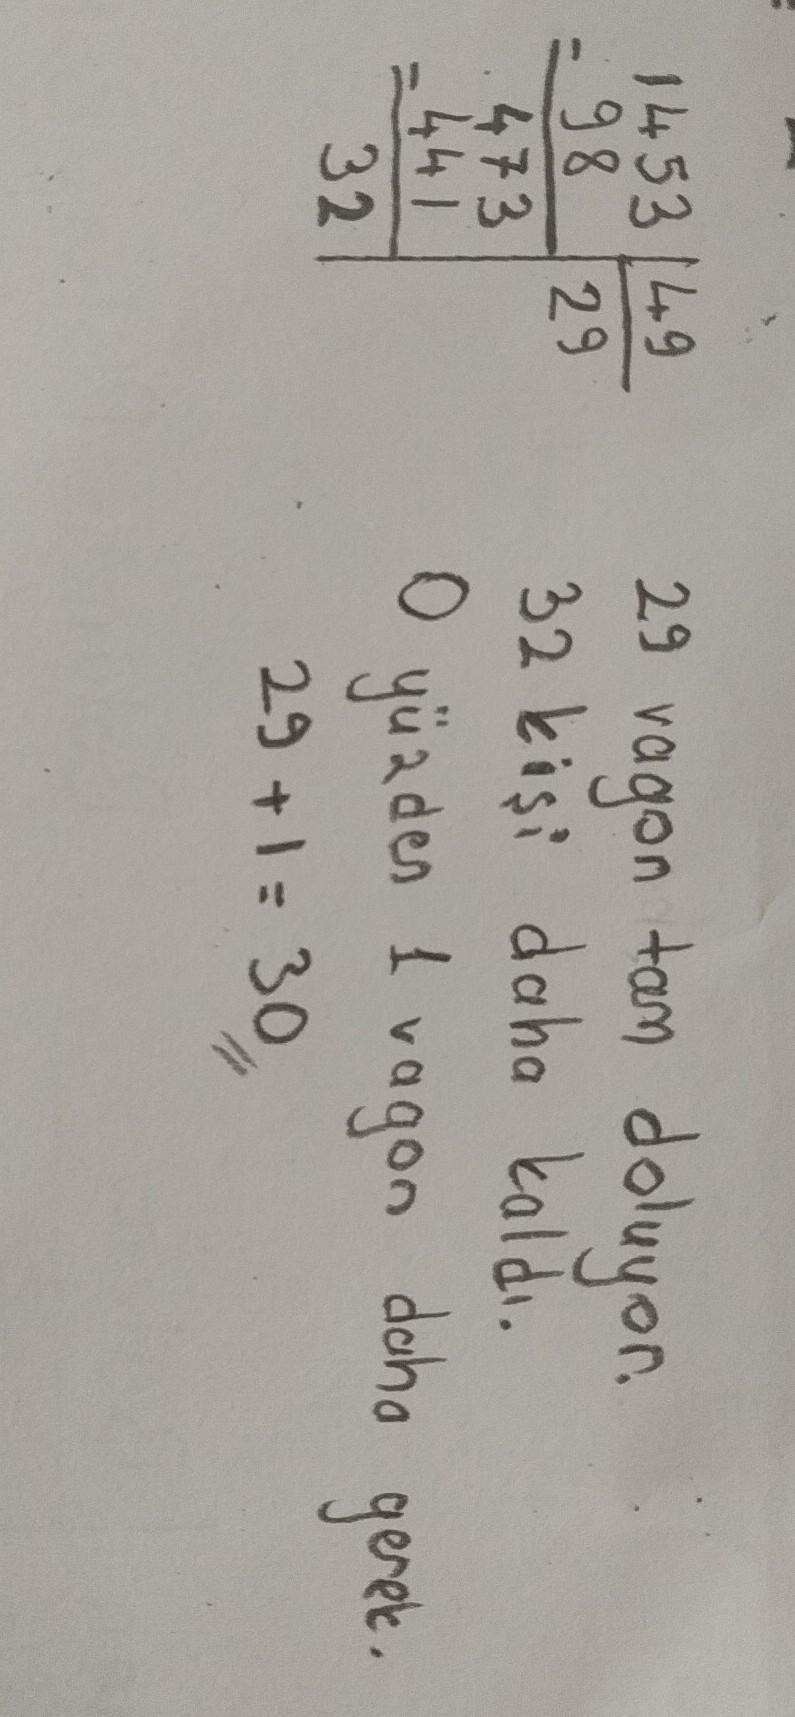 1453 | 49
- 98 | 29
473
- 441
32
29 vagon tam doluyor.
32 kişi daha kaldı.
O yüzden 1 vagon daha gerek.
29 + 1 = 30